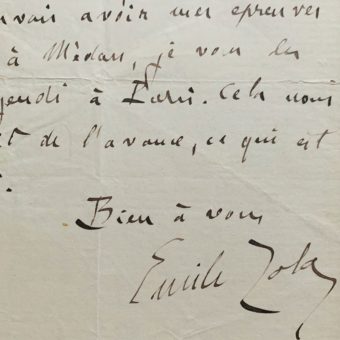 avoir mes épreuves
à Médan, je vous les
jeudi à Paris. Cela nous
t de l'avance, ce qui est
Bien à vous
Emile Zola